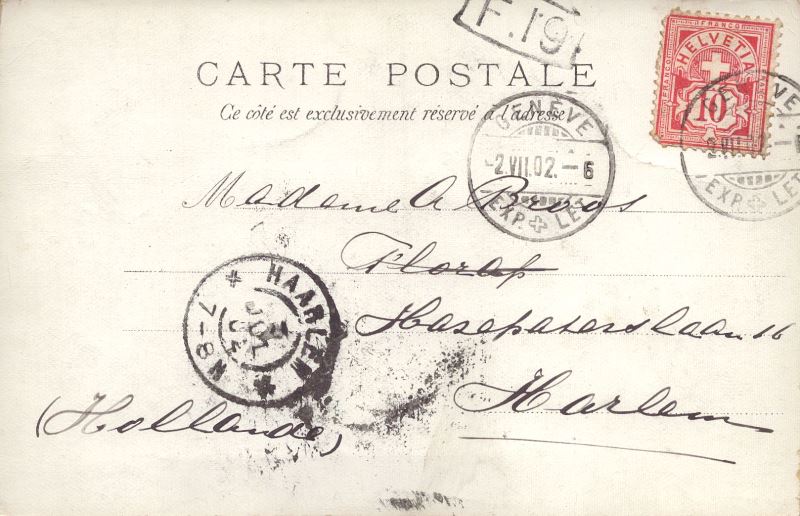 F.19
CARTE POSTALE
Ce côté est exclusivement réservé à l'adresse
FRANCO
HELVETIA
10
GENÈVE
-2.VII.02.-6
EXP. LET.
GENÈVE
2.VII.02
EXP. LET.
Madame A Broos
Hasepaterslaan 16
Harlem
(Hollande)
HAARLEM
JUL
7-8 N